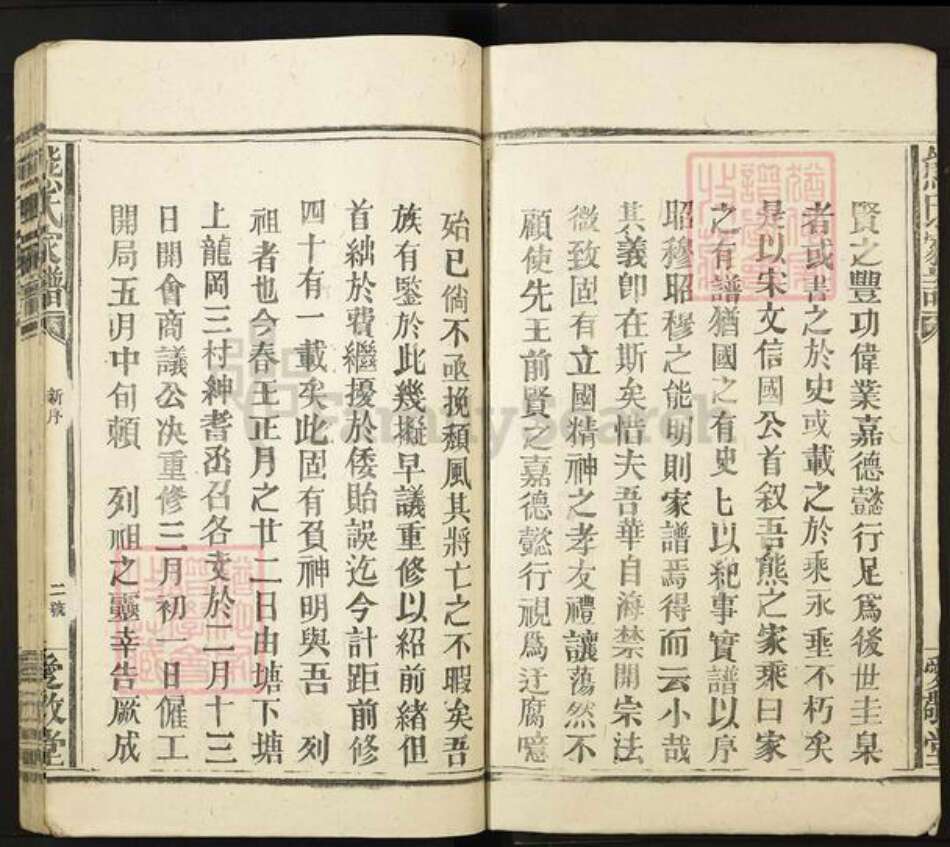 賢之豐功偉業嘉德懿行足爲後世圭臬
者或書之於史或載之於乘永垂不朽矣
是以宋文信國公首叙吾熊之家乘曰家
之有譜猶國之有史史以紀事實譜以序
昭穆昭穆之能明則家譜焉得而云小哉
其義卽在斯矣惜夫吾華自海禁開宗法
微致固有立國精神之孝友禮讓蕩然不
顧使先王前賢之嘉德懿行視爲迂腐噫
殆已倘不亟挽頹風其將亡之不暇矣吾
族有鑒於此幾擬早議重修以紹前緒但
首絀於費繼擾於倭貽誤迄今計距前修
四十有一載矣此固有負神明與吾 列
祖者也今春王正月之廿二日由塘下塘
上龍岡三村紳耆函召各支於二月十三
日開會商議公决重修三月初一日僱工
開局五月中旬賴 列祖之靈幸告厥成
熊氏家譜
新序
二號
愛敬堂
FamilySearch